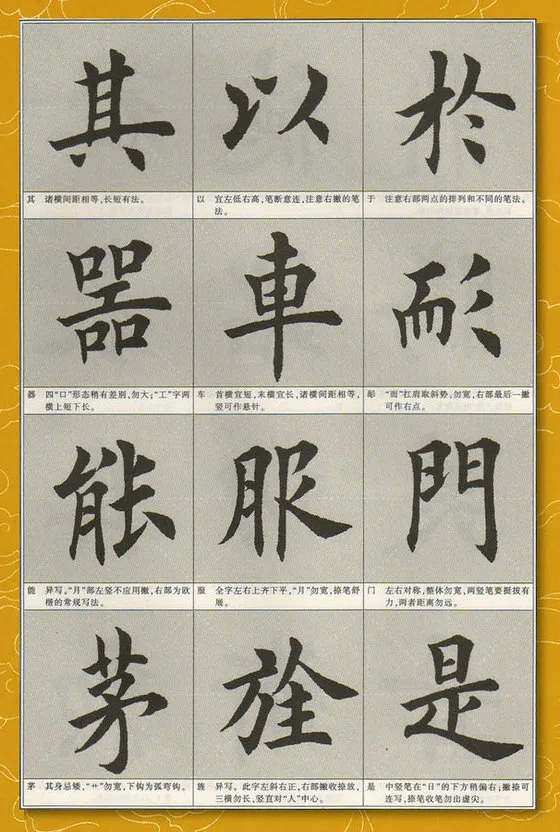 其 以 於
其 诸横间距相等,长短有法。
以 宜左低右高,笔断意连,注意右撇的笔
法。
于 注意右部两点的排列和不同的笔法。
器 車 耏
器 四“口”形态稍有差别,勿大;“工”字两
横上短下长。
车 首横宜短,末横宜长,诸横间距相等,
竖可作悬针。
耏 “而”扛肩取斜势,勿宽,右部最后一撇
可作右点。
能 服 門
能 异写。“月”部左竖不应用撇,右部为欧
楷的常规写法。
服 全字左右上齐下平,“月”勿宽,捺笔舒
展。
门 左右对称,整体勿宽,两竖笔要挺拔有
力,两者距离勿远。
茅 旌 是
茅 其身忌矮,“艹”勿宽,下钩为弧弯钩。
旌 异写。此字左斜右正,右部撇收捺放,
三横勿长,竖直对“人”中心。
是 中竖笔在“日”的下方稍偏右;撇捺可
连写,捺笔收笔勿出虚尖。